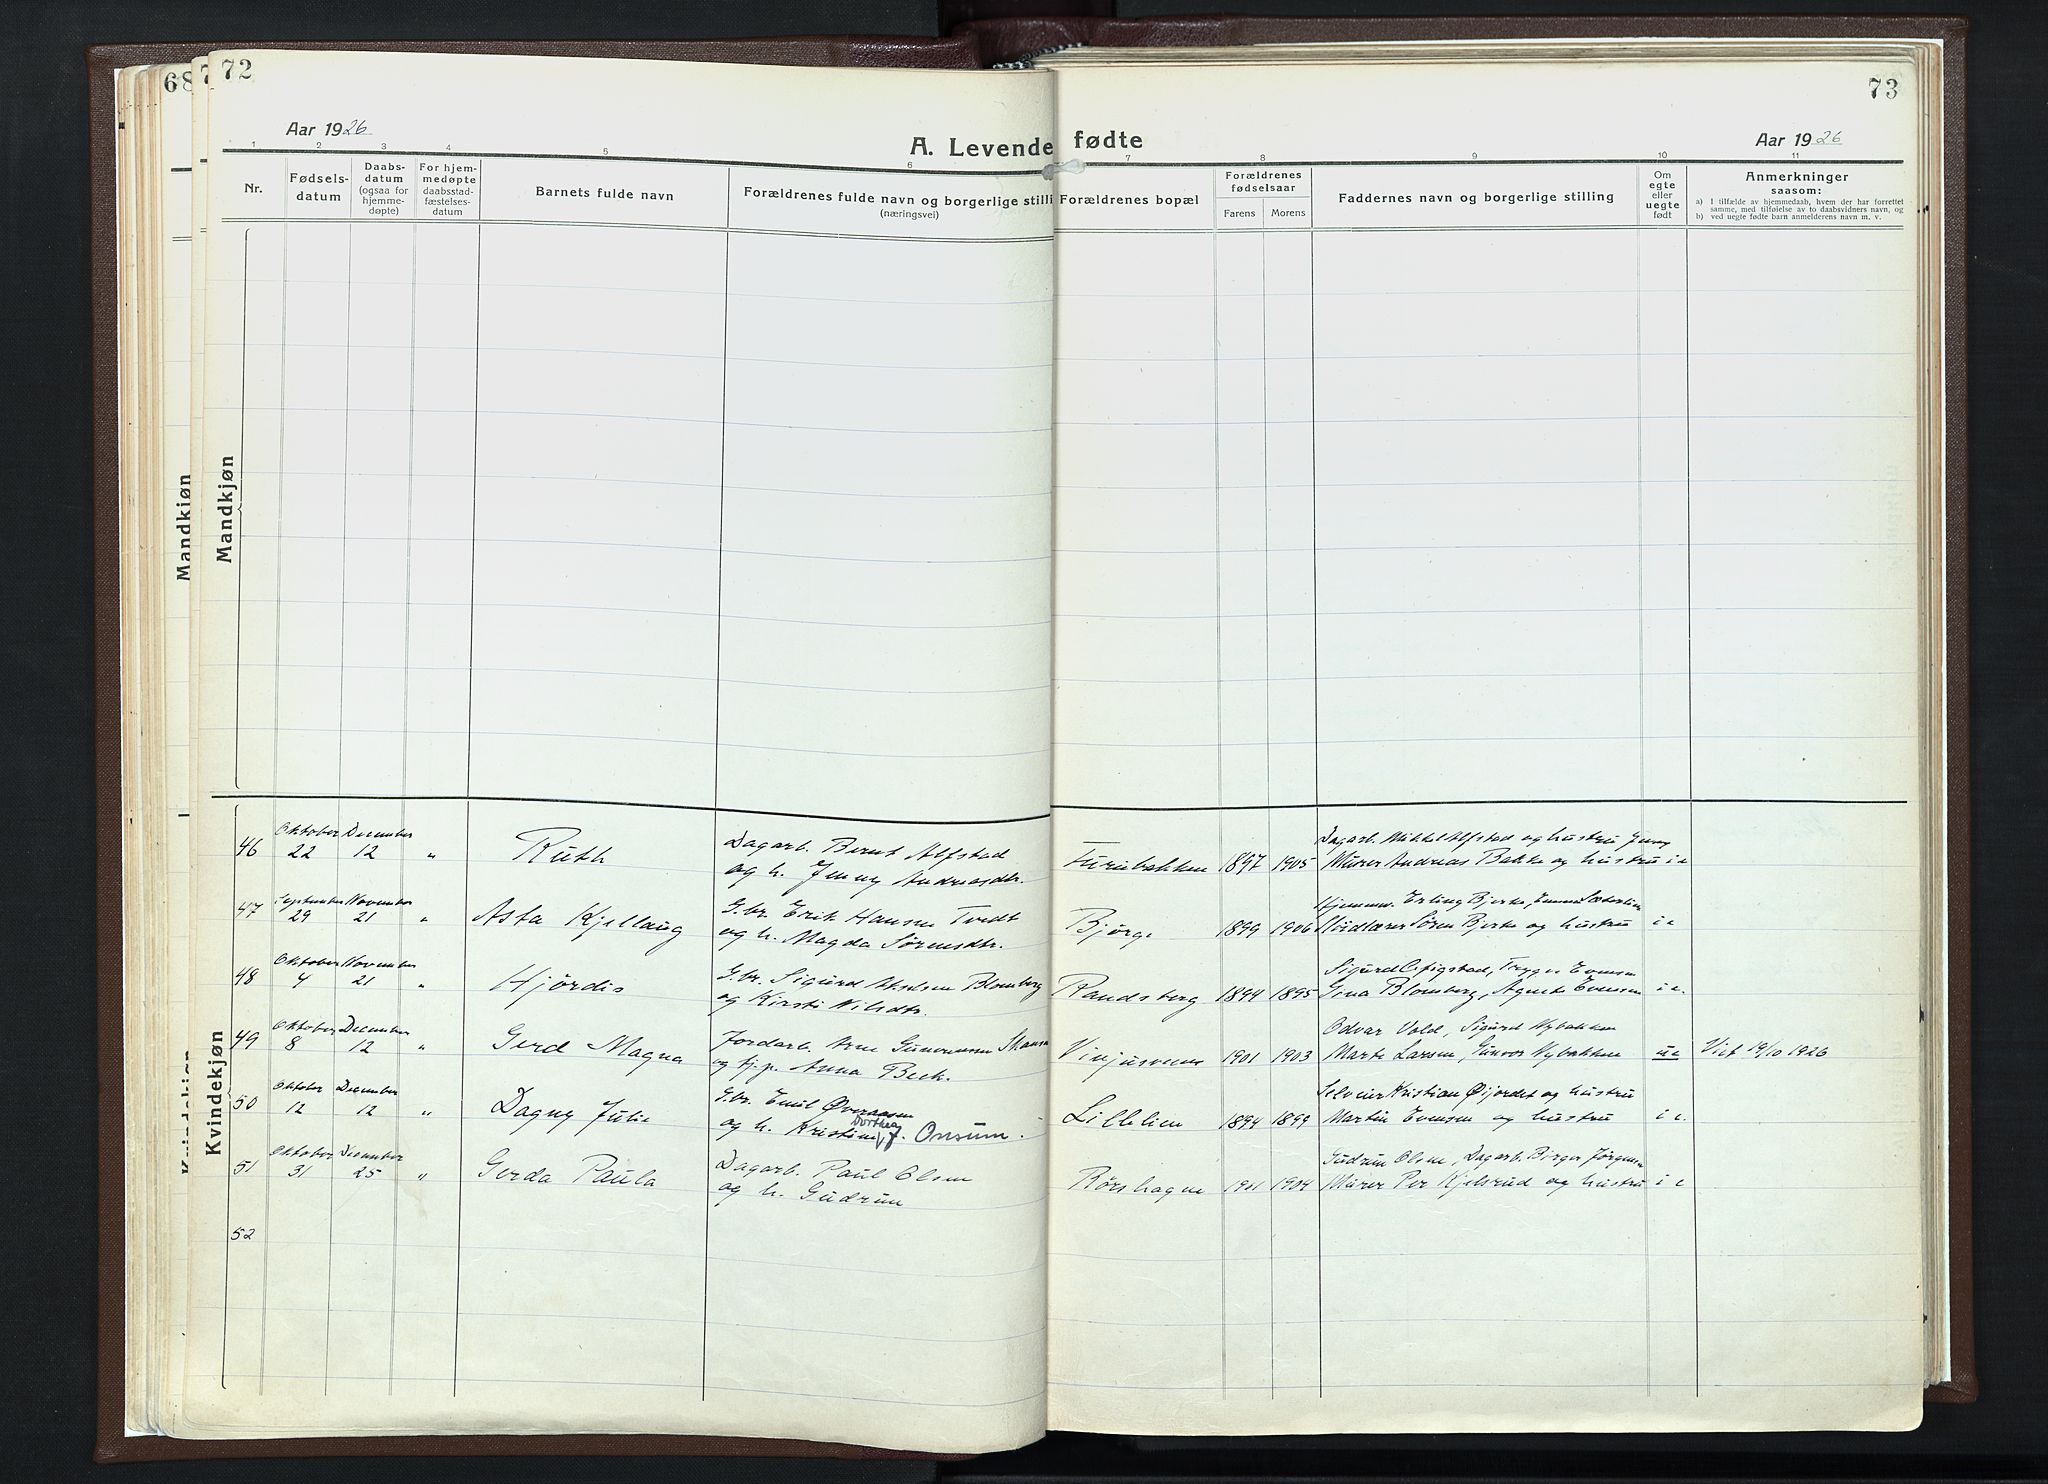 68
7
72
73
Aar 1926
A. Levende fødte
Aar 1926
1 2 3 4 5 6 7 8 9 10 11
Nr.
Fødsels-
datum
Daabs-
datum
(ogsaa for
hjemme-
døpte)
For hjem-
medøpte
daabsstad-
fæstelses-
datum
Barnets fulde navn
Forældrenes fulde navn og borgerlige stilli
(næringsvei)
Forældrenes bopæl
Forældrenes
fødselsaar
Farens
Morens
Faddernes navn og borgerlige stilling
Om
egte
eller
uegte
født
Anmerkninger
saasom:
a) I tilfælde av hjemmedaab, hvem der har forrettet
samme, med tilføielse av to daabsvidners navn, og
b) ved uegte fødte barn anmelderens navn m. v.
Mandkjøn
Mandkjøn
Kvindekjøn
Kvindekjøn
46
Oktober
22
December
12
"
Ruth
Dagarb. Bernt Alfstad
og h. Jenny Andreasdtr.
Furubakken
1897
1905
Dagarb. Mikkel Alfstad og hustru Jenny
Murer Andreas Bakke og hustru
i e
47
September
29
November
21
"
Asta Kjellaug
G.br. Erik Hansen Tvedt
og h. Magda Sørensdtr.
Bjørge
1899
1906
Hjemmv. Erling Bjerke, Emma Sæterlien
Søren Bjerke og hustru
i e
48
Oktober
4
November
21
"
Hjørdis
G.br. Sigurd Akselsen Blomberg
og Kirsti Nilsdtr.
Randsberg
1894
1895
Sigurd Trygve Evensen
Gina Blomberg, Agnete Evensen
i e.
49
Oktober
8
December
12
"
Gerd Magna
Jordarb. Arne Gunvensen
og tj.p. Anna Beck.
1901
1903
Odvar Vold, Sigurd Nybakken
Marte Larsen, Gunvor Nybakken
ue
Viet 19/10 1926
50
Oktober
12
December
12
"
Dagny Julie
G.br. Emil Øveraasen
Dorthea
og h. Kristine f. Onsum.
Lillelien
1894
1899
Selveier Kristian Øijordet og hustru
Martin Evensen og hustru
i e.
51
Oktober
31
December
25
"
Gerda Paula
Dagarb. Paul Olsen
og h. Gudrun
Rørshagen
1901
1904
Gudrun Olsen, Dagarb. Birger Jørgensen
Murer Per Kjelsrud og hustru
i e
52